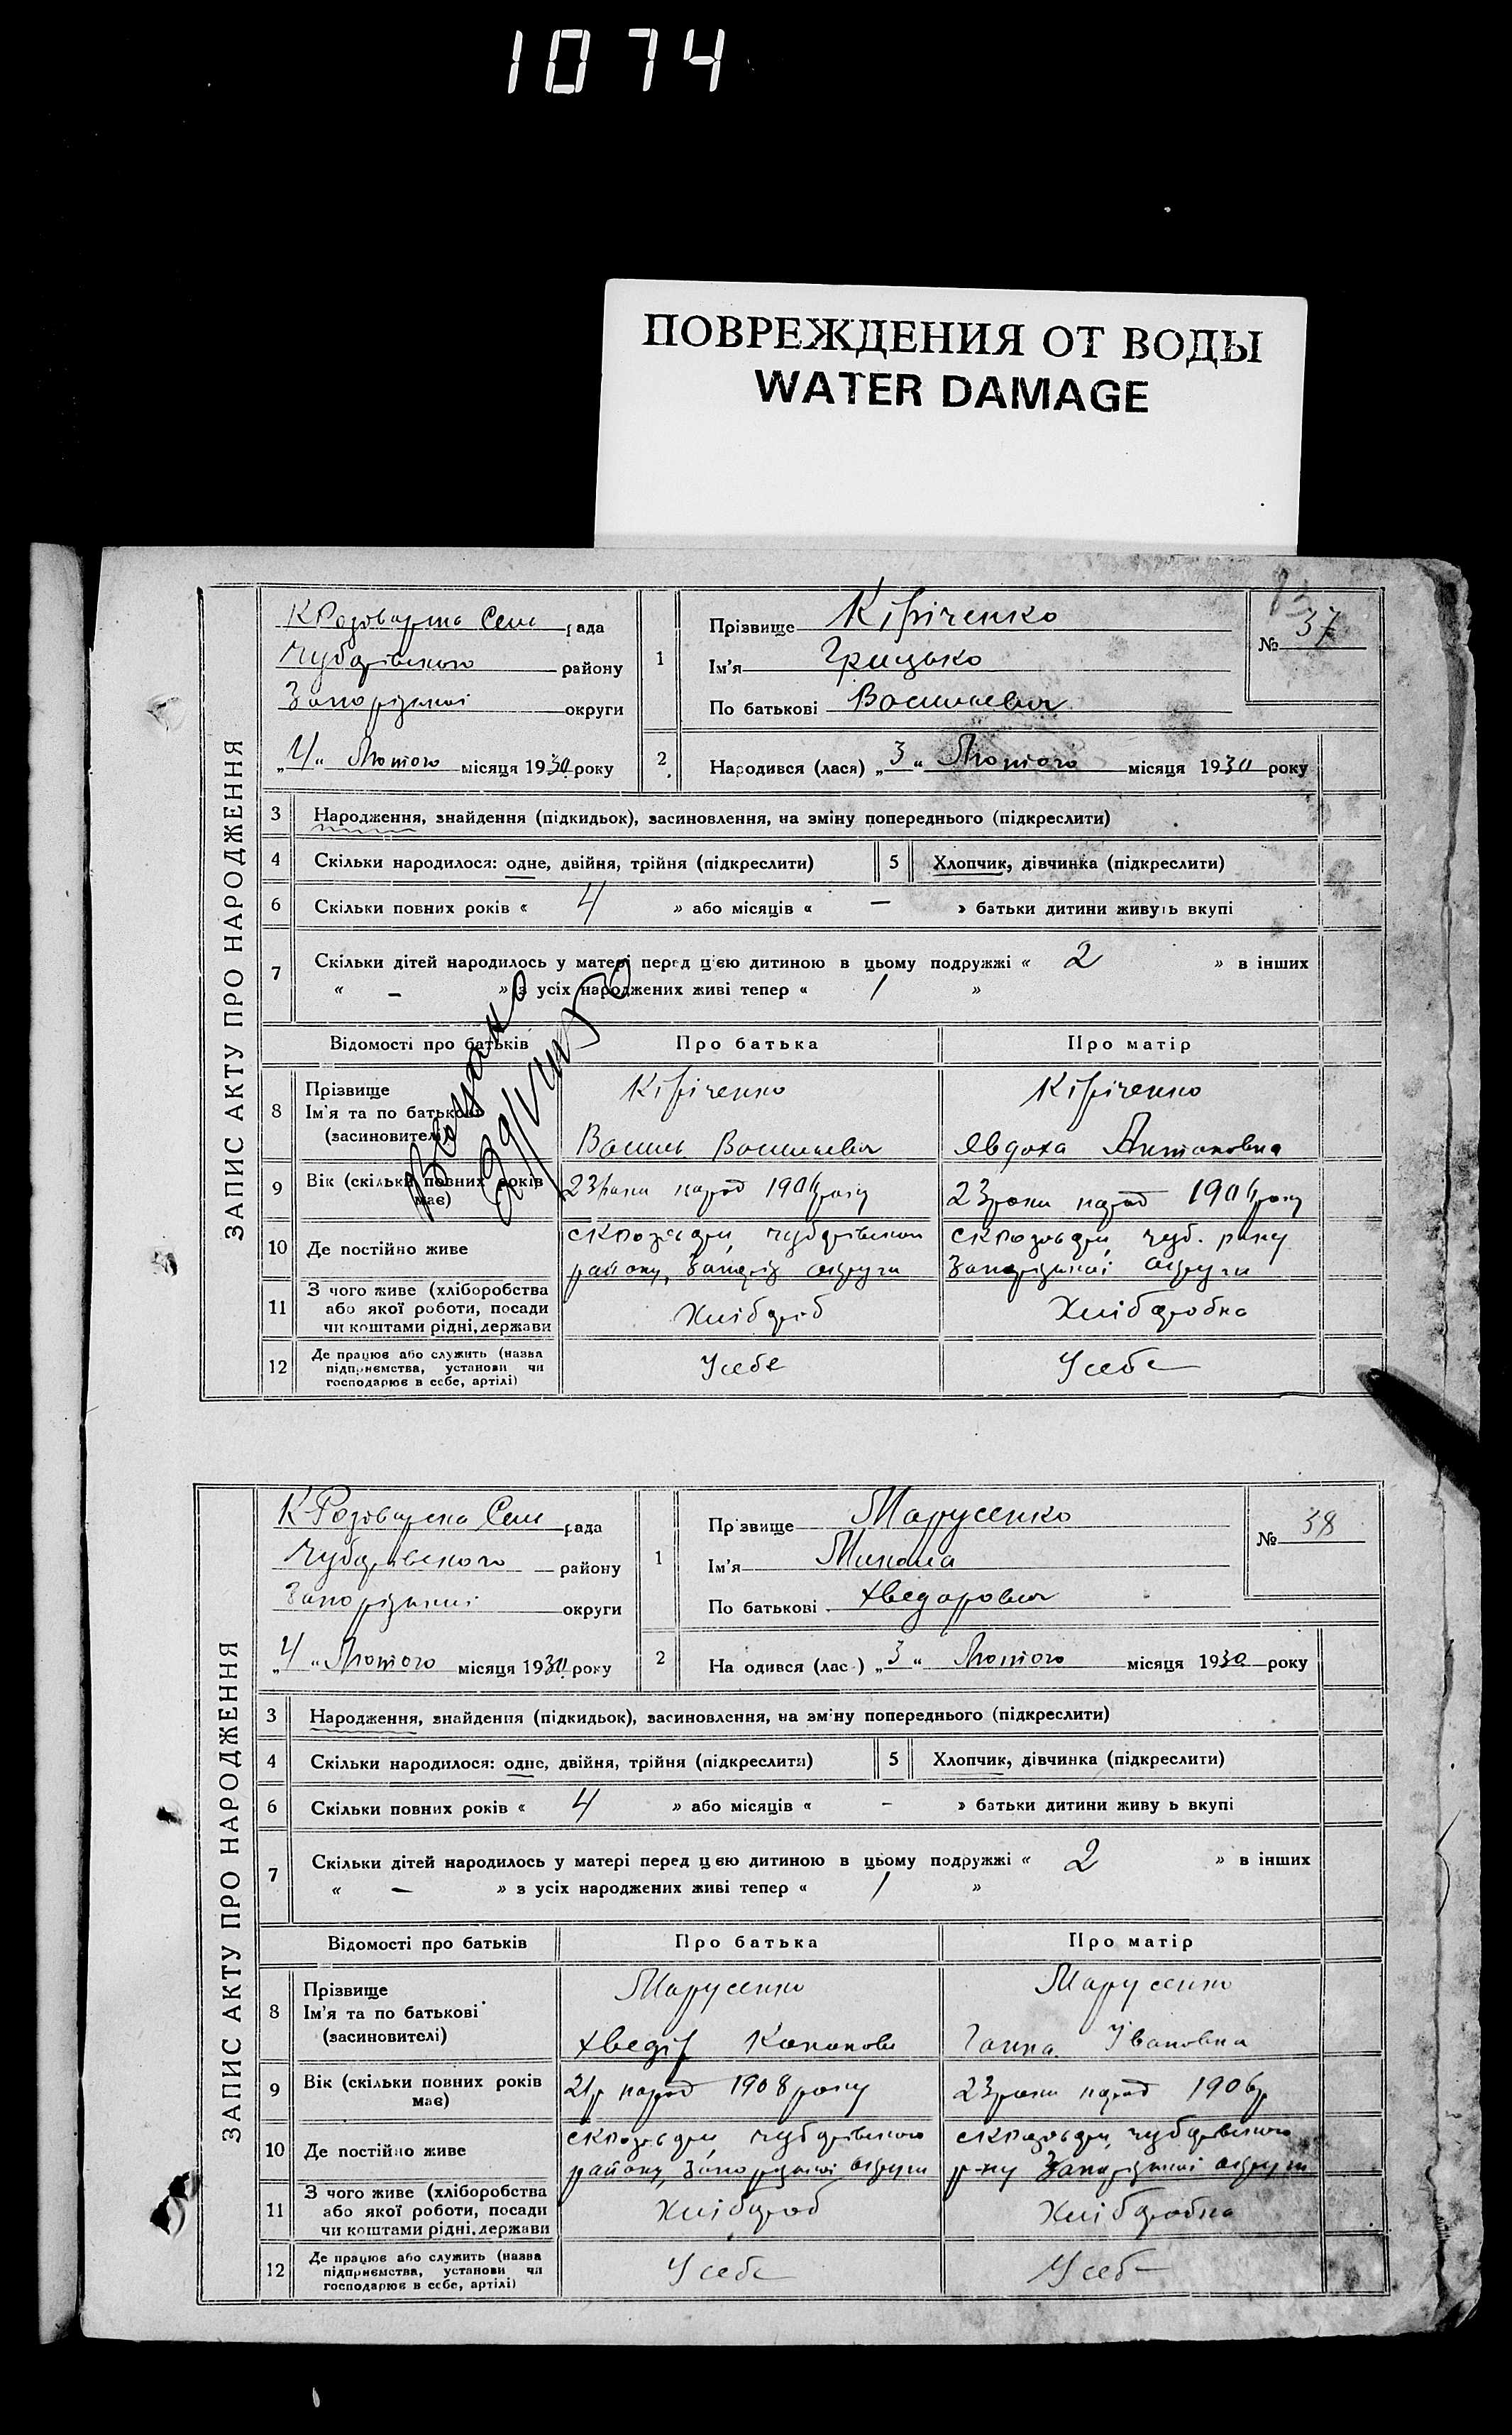 1074
ПОВРЕЖДЕНИЯ ОТ ВОДЫ
WATER DAMAGE
ЗАПИС АКТУ ПРО НАРОДЖЕННЯ
рада
Чубарівського району
Запорізької округи
„4“ Лютого місяця 1930 року
1
Прізвище Кіріченко
Ім'я Грицько
По батькові Васильевич
№ 37
2
Народився (лася) „3“ Лютого місяця 1930 року
3 Народження, знайдення (підкидьок), засиновлення, на зміну попереднього (підкреслити)
4 Скільки народилося: одне, двійня, трійня (підкреслити)
5 Хлопчик, дівчинка (підкреслити)
6 Скільки повних років « 4 » або місяців « – » батьки дитини живуть вкупі
7 Скільки дітей народилось у матері перед цією дитиною в цьому подружжі « 2 » в інших
« – » з усіх народжених живі тепер « 1 »
Відомості про батьків
Про батька
Про матір
8 Прізвище
Ім'я та по батькові
(засиновителі)
Кіріченко
Василь Васильевич
Кіріченко
Явдоха Антоновна
9 Вік (скільки повних років має)
23 роки народ 1906 року
23 роки народ 1906 року
10 Де постійно живе
Чубарівського
району, Запоріз округи
Чуб. р-ну
Запорізької округи
11 З чого живе (хліборобства
або якої роботи, посади
чи коштами рідні, держави
Хлібороб
Хліборобка
12 Де працює або служить (назва
підприємства, установи чи
господарює в себе, артілі)
У себе
У себе
ЗАПИС АКТУ ПРО НАРОДЖЕННЯ
рада
Чубарівського району
Запорізької округи
„4“ Лютого місяця 1930 року
1
Прізвище Марусенко
Ім'я Микола
По батькові Хведорович
№ 38
2
На одився (лас ) „3“ Лютого місяця 1930 року
3 Народження, знайдення (підкидьок), засиновлення, на зміну попереднього (підкреслити)
4 Скільки народилося: одне, двійня, трійня (підкреслити)
5 Хлопчик, дівчинка (підкреслити)
6 Скільки повних років « 4 » або місяців « – » батьки дитини живу ь вкупі
7 Скільки дітей народилось у матері перед цією дитиною в цьому подружжі « 2 » в інших
« – » з усіх народжених живі тепер « 1 »
Відомості про батьків
Про батька
Про матір
8 Прізвище
Ім'я та по батькові
(засиновителі)
Марусенко
Хведір
Марусенко
Ганна Івановна
9 Вік (скільки повних років має)
21 р народ 1908 року
23 роки народ 1906 р
10 Де постійно живе
Чубарівського
району, Запорізької округи
Чубарівського
р-ну Запорізької округи
11 З чого живе (хліборобства
або якої роботи, посади
чи коштами рідні, держави
Хлібороб
Хліборобка
12 Де працює або служить (назва
підприємства, установи чи
господарює в себе, артілі)
У себе
У себе